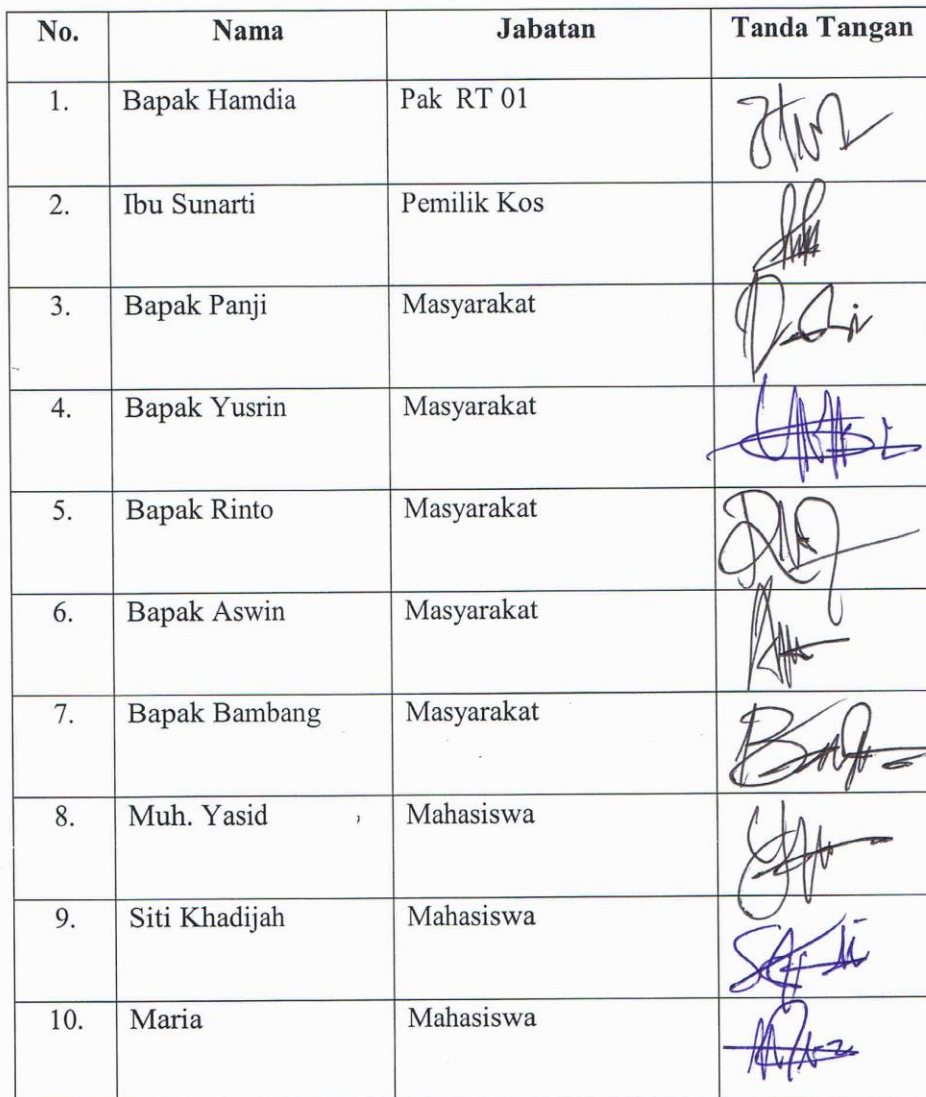 No. Nama Jabatan Tanda Tangan
1. Bapak Hamdia Pak RT 01
2. Ibu Sunarti Pemilik Kos
3. Bapak Panji Masyarakat
4. Bapak Yusrin Masyarakat
5. Bapak Rinto Masyarakat
6. Bapak Aswin Masyarakat
7. Bapak Bambang Masyarakat
8. Muh. Yasid Mahasiswa
9. Siti Khadijah Mahasiswa
10. Maria Mahasiswa